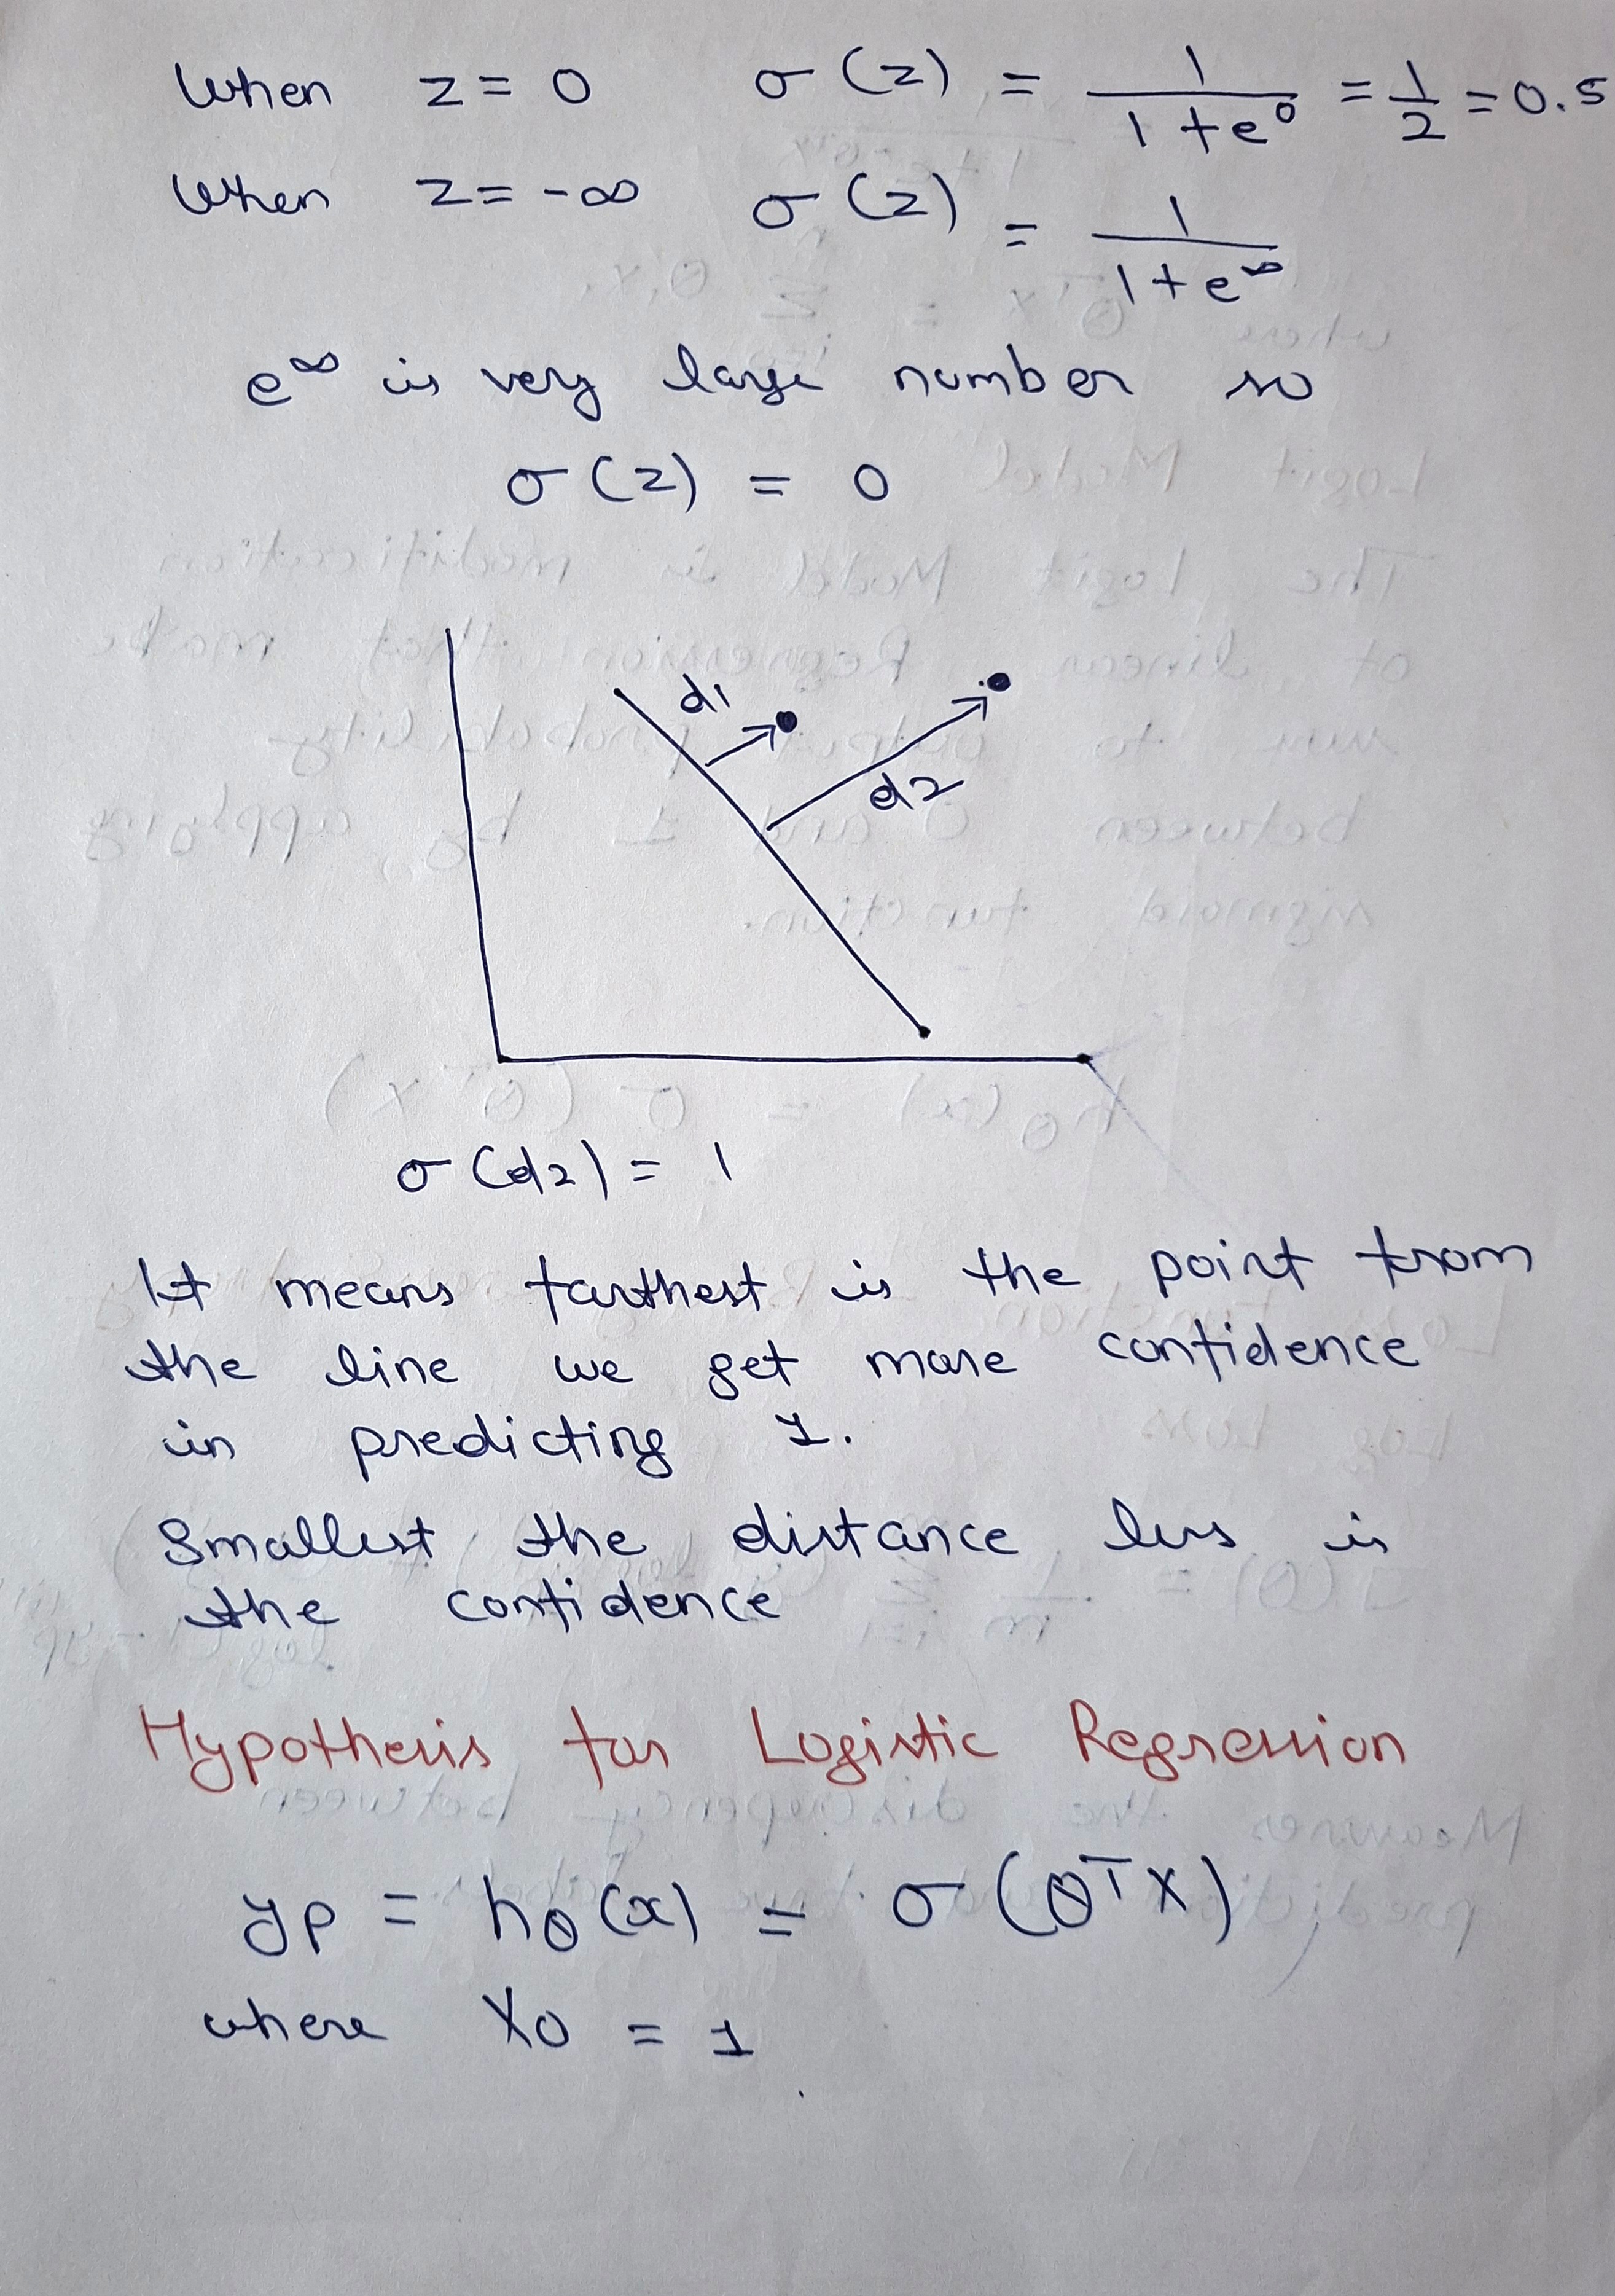 When z = 0 σ(z) = 1/(1+e⁰) = 1/2 = 0.5
When z = -∞ σ(z) = 1/(1+e^∞)
e^∞ is very large number so
σ(z) = 0
d1
d2
σ(d2) = 1
It means farthest is the point from
the line we get more confidence
in predicting 1.
Smallest the distance less is
the confidence
Hypothesis for Logistic Regression
yp = hθ(x) = σ(θᵀX)
where X0 = 1